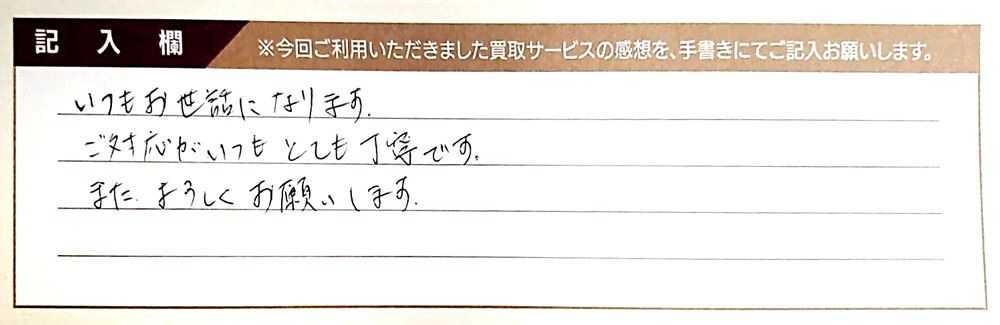 記入欄
※今回ご利用いただきました買取サービスの感想を、手書きにてご記入お願いします。
いつもお世話になります。
ご対応がいつもとても丁寧です。
また、よろしくお願いします。